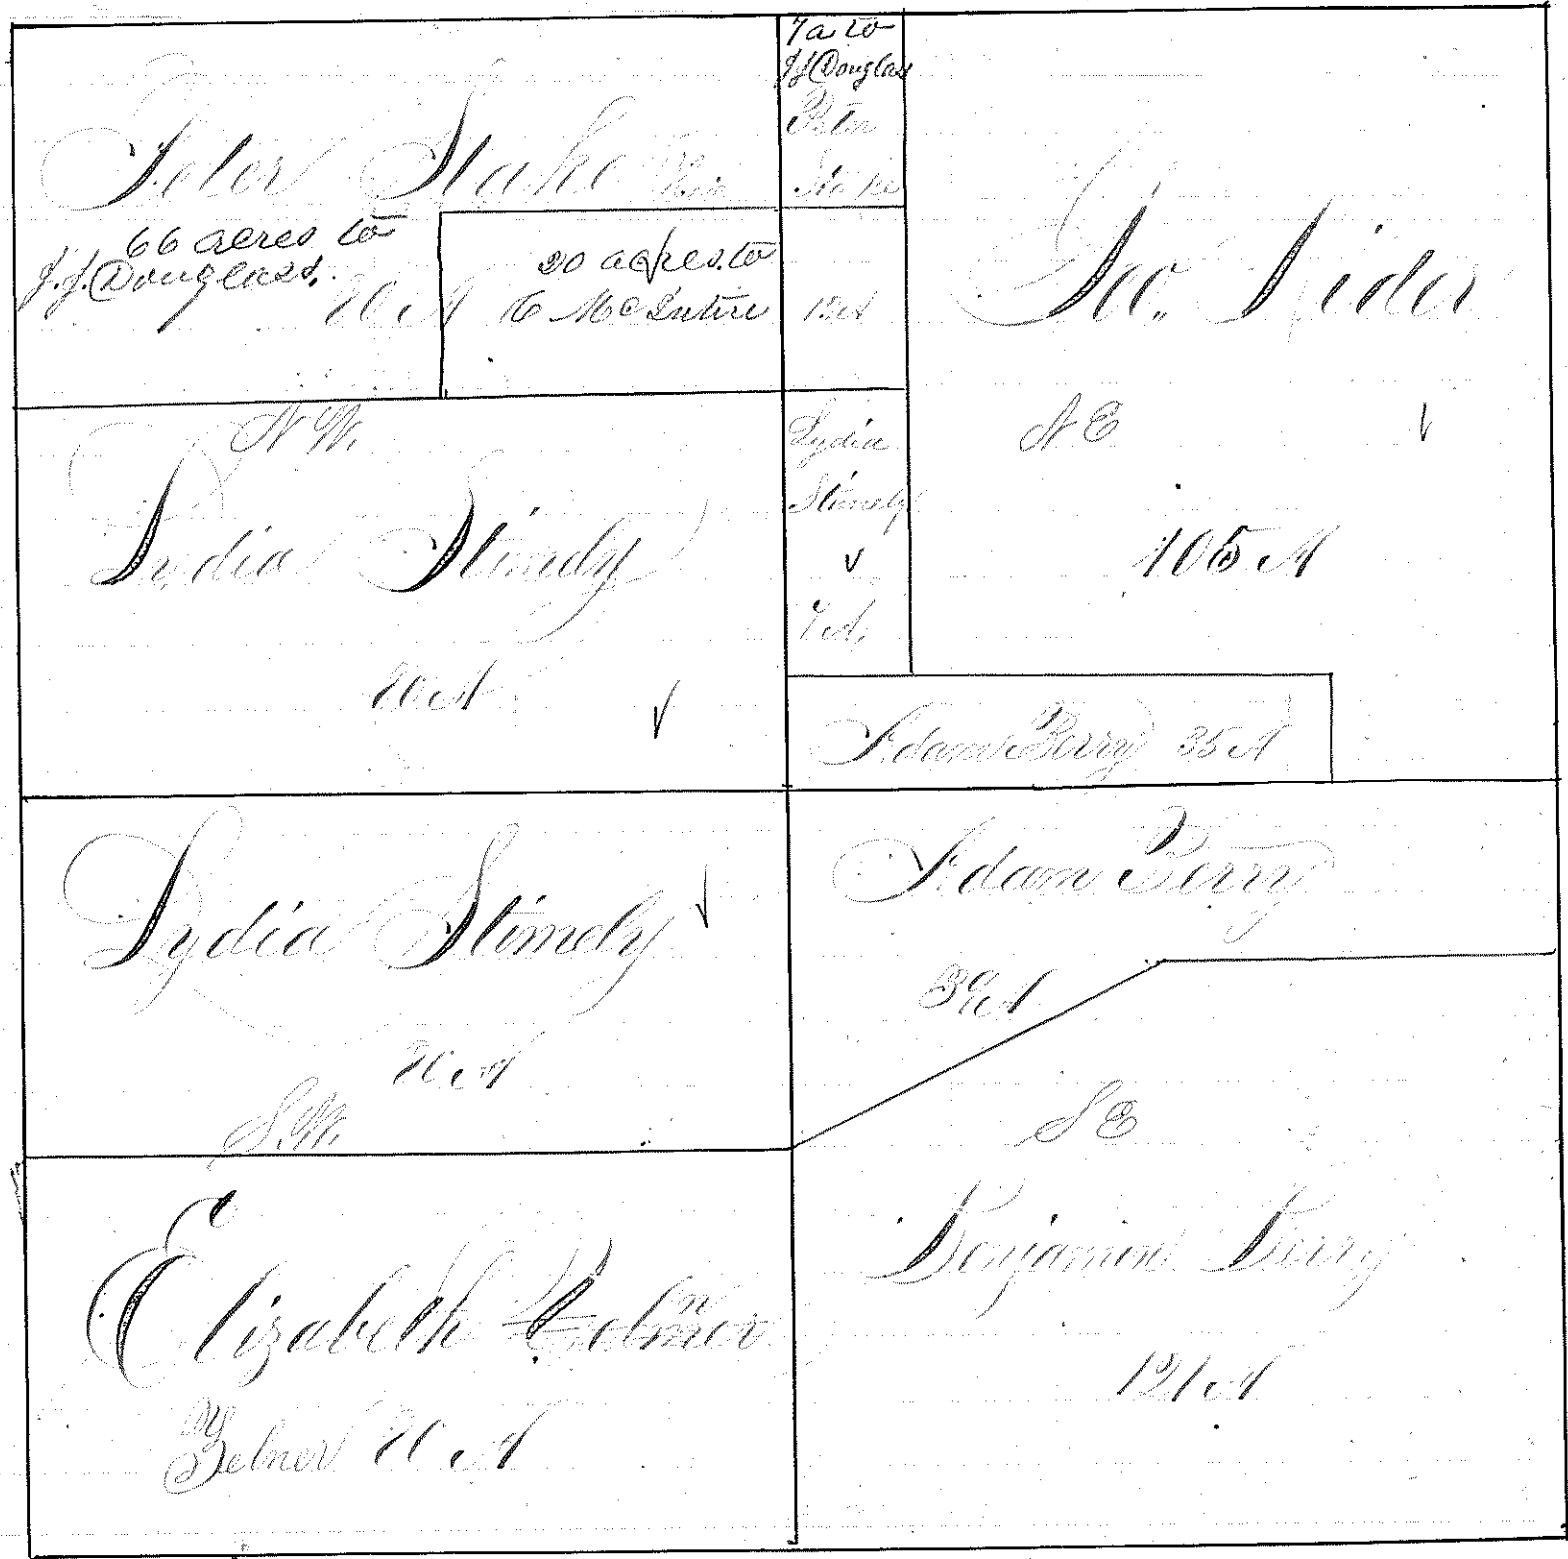 Peter Stake
66 acres to
J.J. Douglass.
80 A
20 acres to
McIntire
7 a to
J J Douglass
Peter
Stake
15 A
Geo. Sider
N E
105 A
N W.
Lydia Stimely
80 A
Lydia
Stimely
7 A.
Adam Berry 35 A
Lydia Stimely
80 A
S. W.
Adam Berry
A
S E
Benjamin Berry
121 A
Elizabeth
80 A